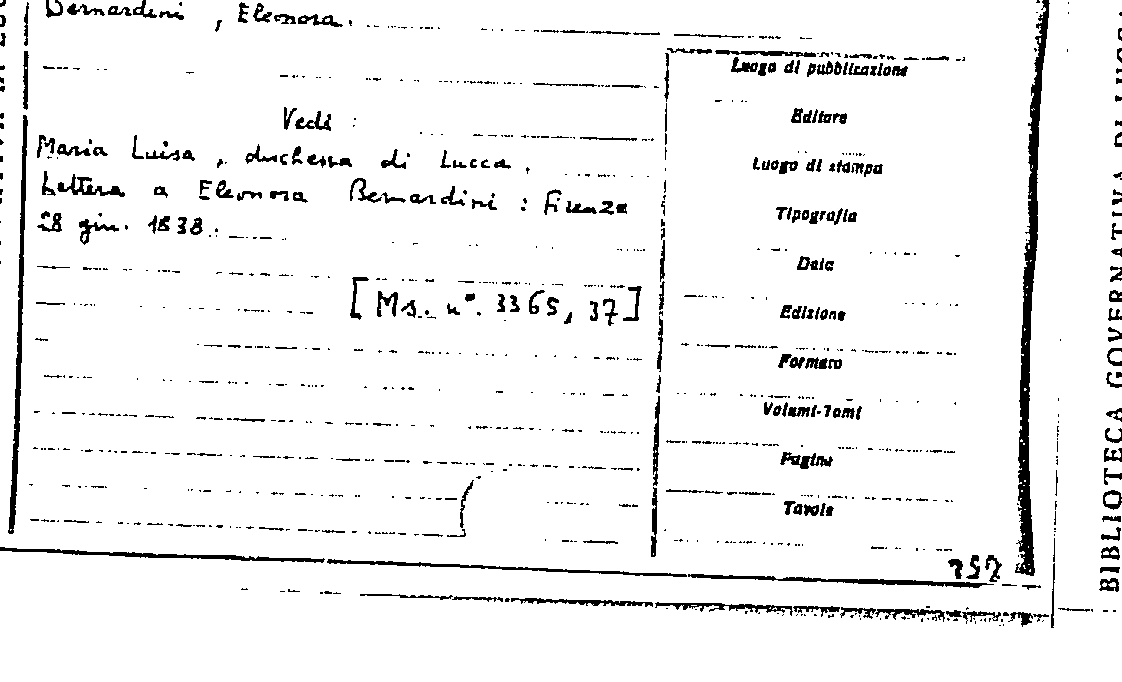 Bernardini, Eleonora.
Vedi:
Maria Luisa, duchessa di Lucca.
Lettera a Eleonora Bernardini: Firenze
28 giu. 1838.
[Ms. n°. 3365, 37]
Luogo di pubblicazione
Editore
Luogo di stampa
Tipografia
Data
Edizione
Formato
Volumi-Tomi
Pagine
Tavole
BIBLIOTECA GOVERNATIVA DI LUCCA